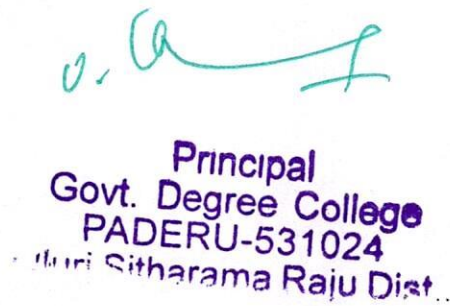 Principal
Govt. Degree College
PADERU-531024
Sitharama Raju Dist.